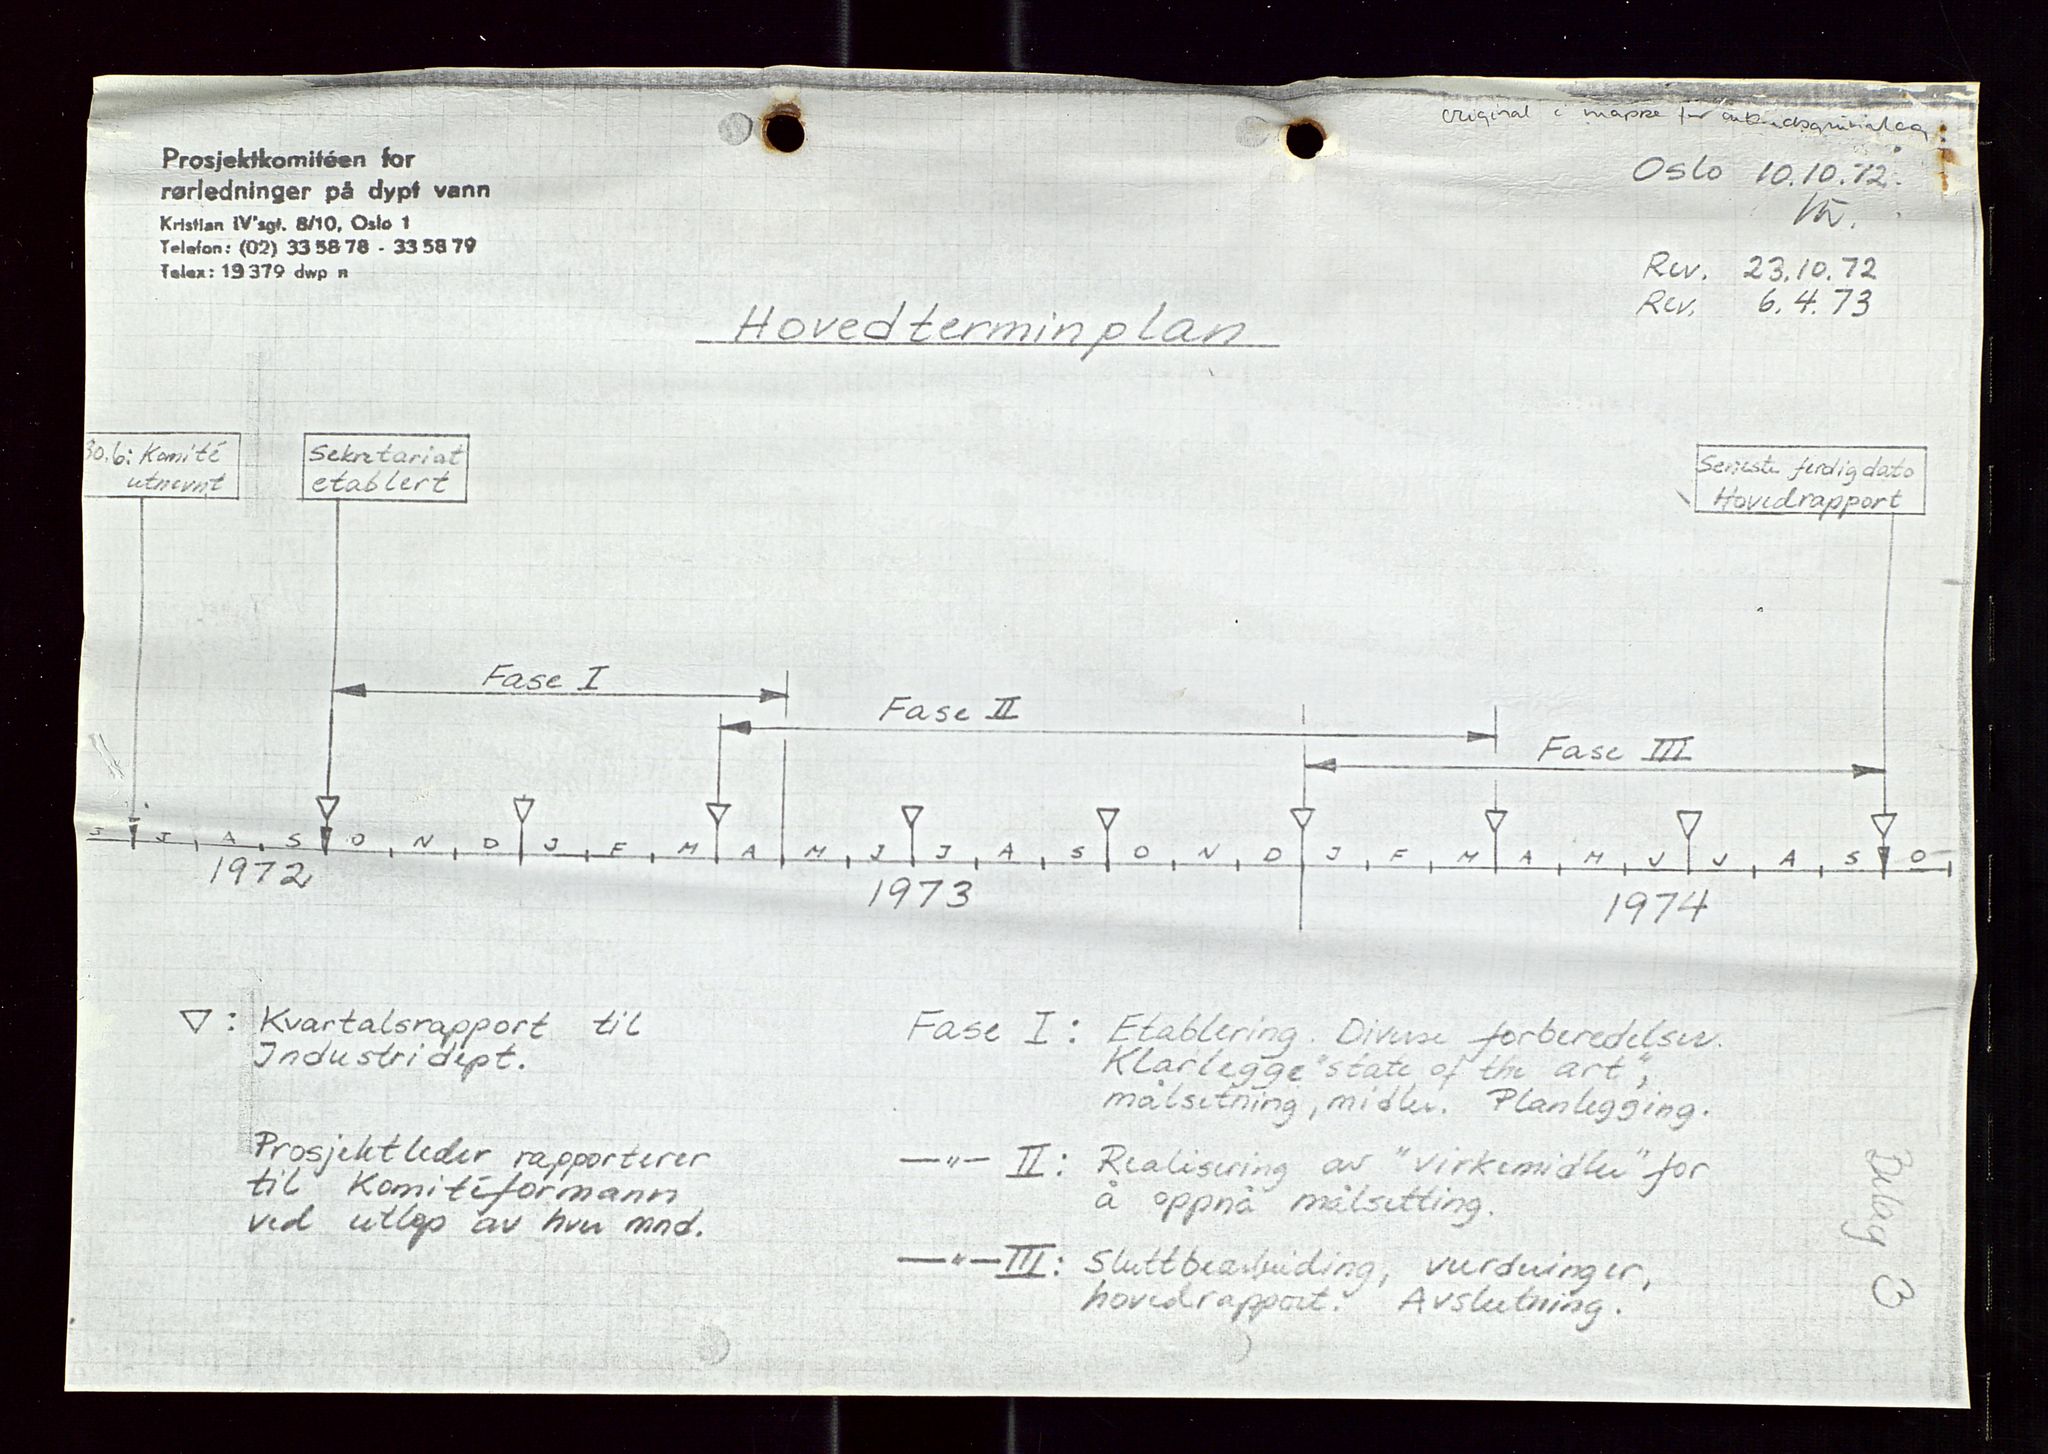 original i mappe for
Prosjektkomitéen for
rørledninger på dypt vann
Kristian IV'sgt. 8/10, Oslo 1
Telefon: (02) 33 58 78 - 33 58 79
Telex: 19 379 dwp n
Oslo 10.10.72.
Rev. 23.10.72
Rev. 6.4.73
Hovedterminplan
30.6: Komité
utnevnt
Sekretariat
etablert
Seneste ferdigdato
Hovedrapport
Fase I
Fase II
Fase III
J J A S O N D J F M A M J J A S O N D J F M A M J J A S O
1972 1973 1974
▽: Kvartalsrapport til
Industridept.
Prosjektleder rapporterer
til Komitéformann
ved utløp av hver mnd.
Fase I: Etablering. Diverse forberedelser.
Klarlegge "state of the art",
målsetning, midler. Planlegging.
—"— II: Realisering av "virkemidler" for
å oppnå målsetting.
—"— III: Sluttbearbeiding, vurderinger,
hovedrapport. Avslutning.
Bilag 3